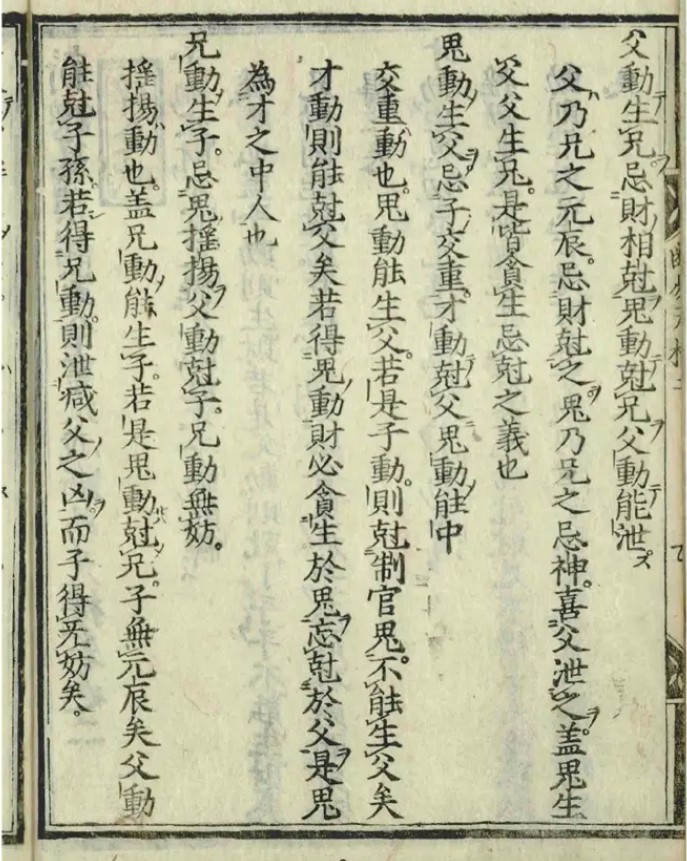 父動生兄忌財相尅鬼動尅兄父動能泄
父乃兄之元辰忌財尅之鬼乃兄之忌神喜父泄之盖鬼生
父父生兄是皆貪生忌尅之義也
鬼動生父忌子交重才動尅父鬼動能中
交重動也鬼動能生父若是子動則尅制官鬼不能生父矣
才動則能尅父矣若得鬼動財必貪生於鬼忘尅於父是鬼
為才之中人也
兄動生子忌鬼揺揚父動尅子兄動無妨
揺揚動也盖兄動能生子若是鬼動尅兄子無元辰矣父動
能尅子孫若得兄動則泄减父之凶而子得无妨矣